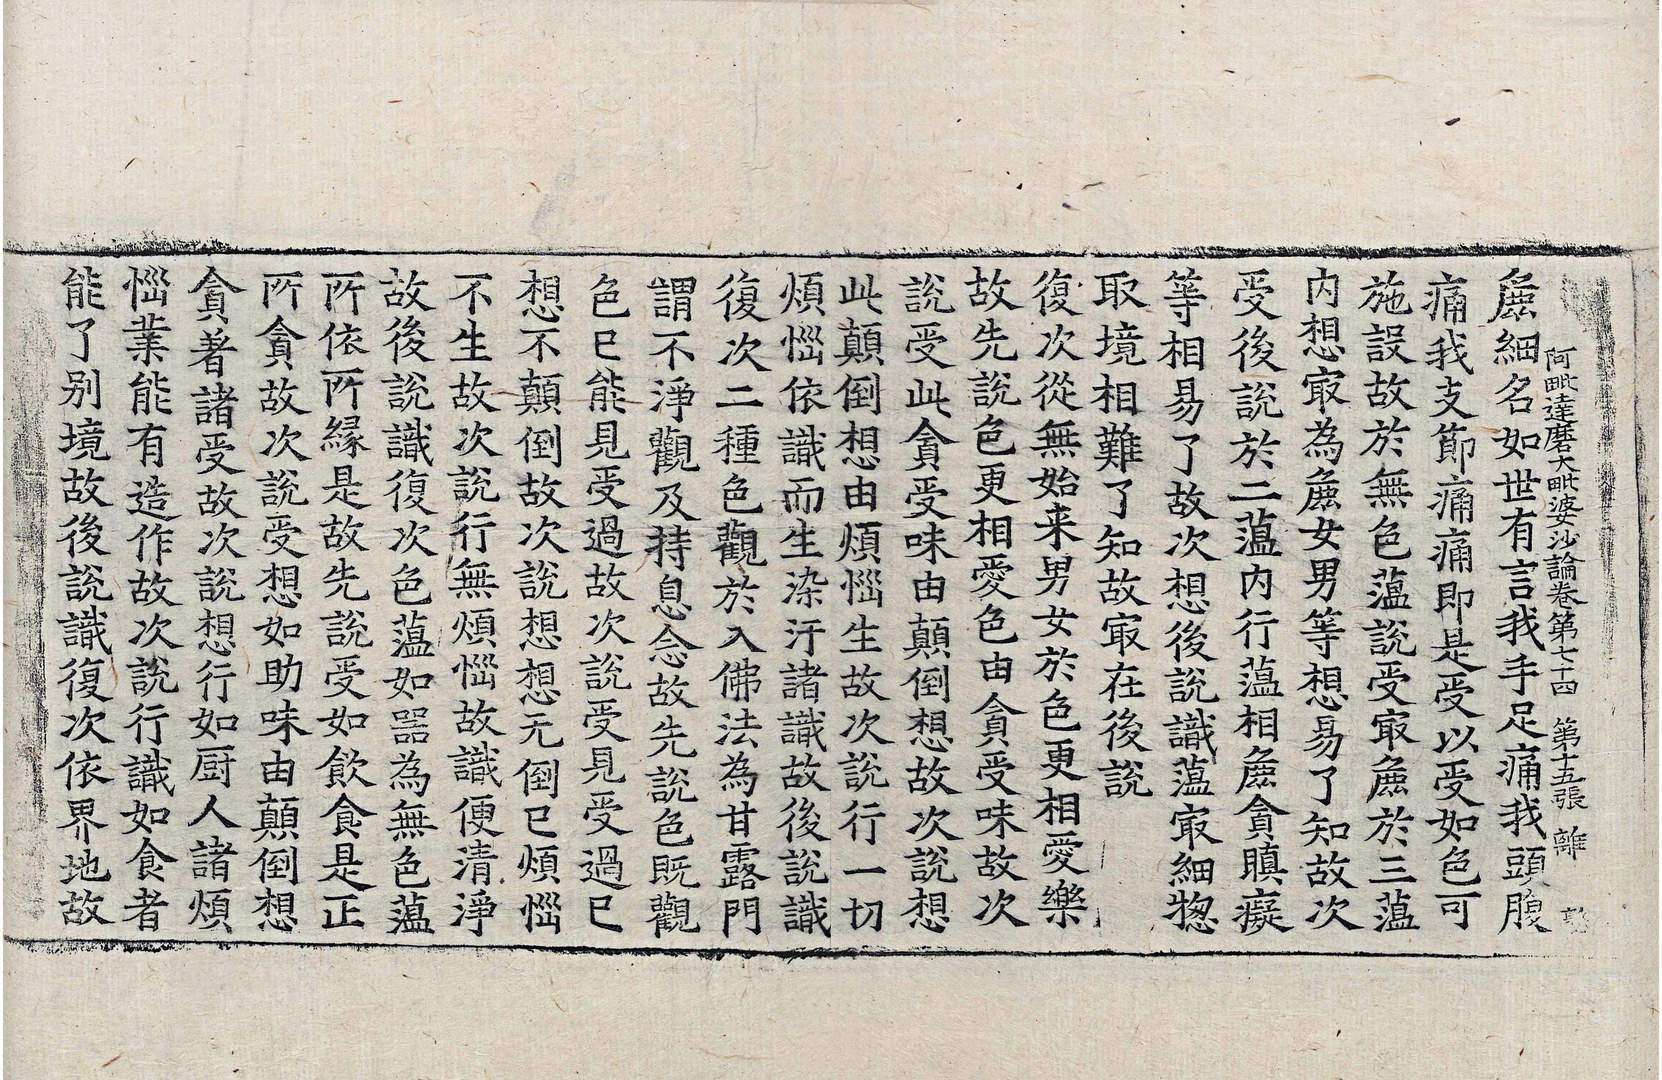 阿毗達磨大毗婆沙論卷第七十四 第十五張 離
麁細名如世有言我手足痛我頭腹
痛我支節痛痛即是受以受如色可
施設故於無色蘊說受㝡麁於三蘊
内想㝡為麁女男等想易了知故次
受後說於二蘊内行蘊相麁貪瞋癡
等相易了故次想後說識蘊㝡細惣
取境相難了知故㝡在後說
復次從無始来男女於色更相愛樂
故先說色更相愛色由貪受味故次
說受此貪受味由顛倒想故次說想
此顛倒想由煩惱生故次說行一切
煩惱依識而生染汙諸識故後說識
復次二種色觀於入佛法為甘露門
謂不淨觀及持息念故先說色既觀
色已能見受過故次說受見受過已
想不顛倒故次說想想无倒已煩惱
不生故次說行無煩惱故識便清淨
故後說識復次色蘊如器為無色蘊
所依所緣是故先說受如飲食是正
所貪故次說受想如助味由顛倒想
貪著諸受故次說想行如厨人諸煩
惱業能有造作故次說行識如食者
能了别境故後說識復次依界地故